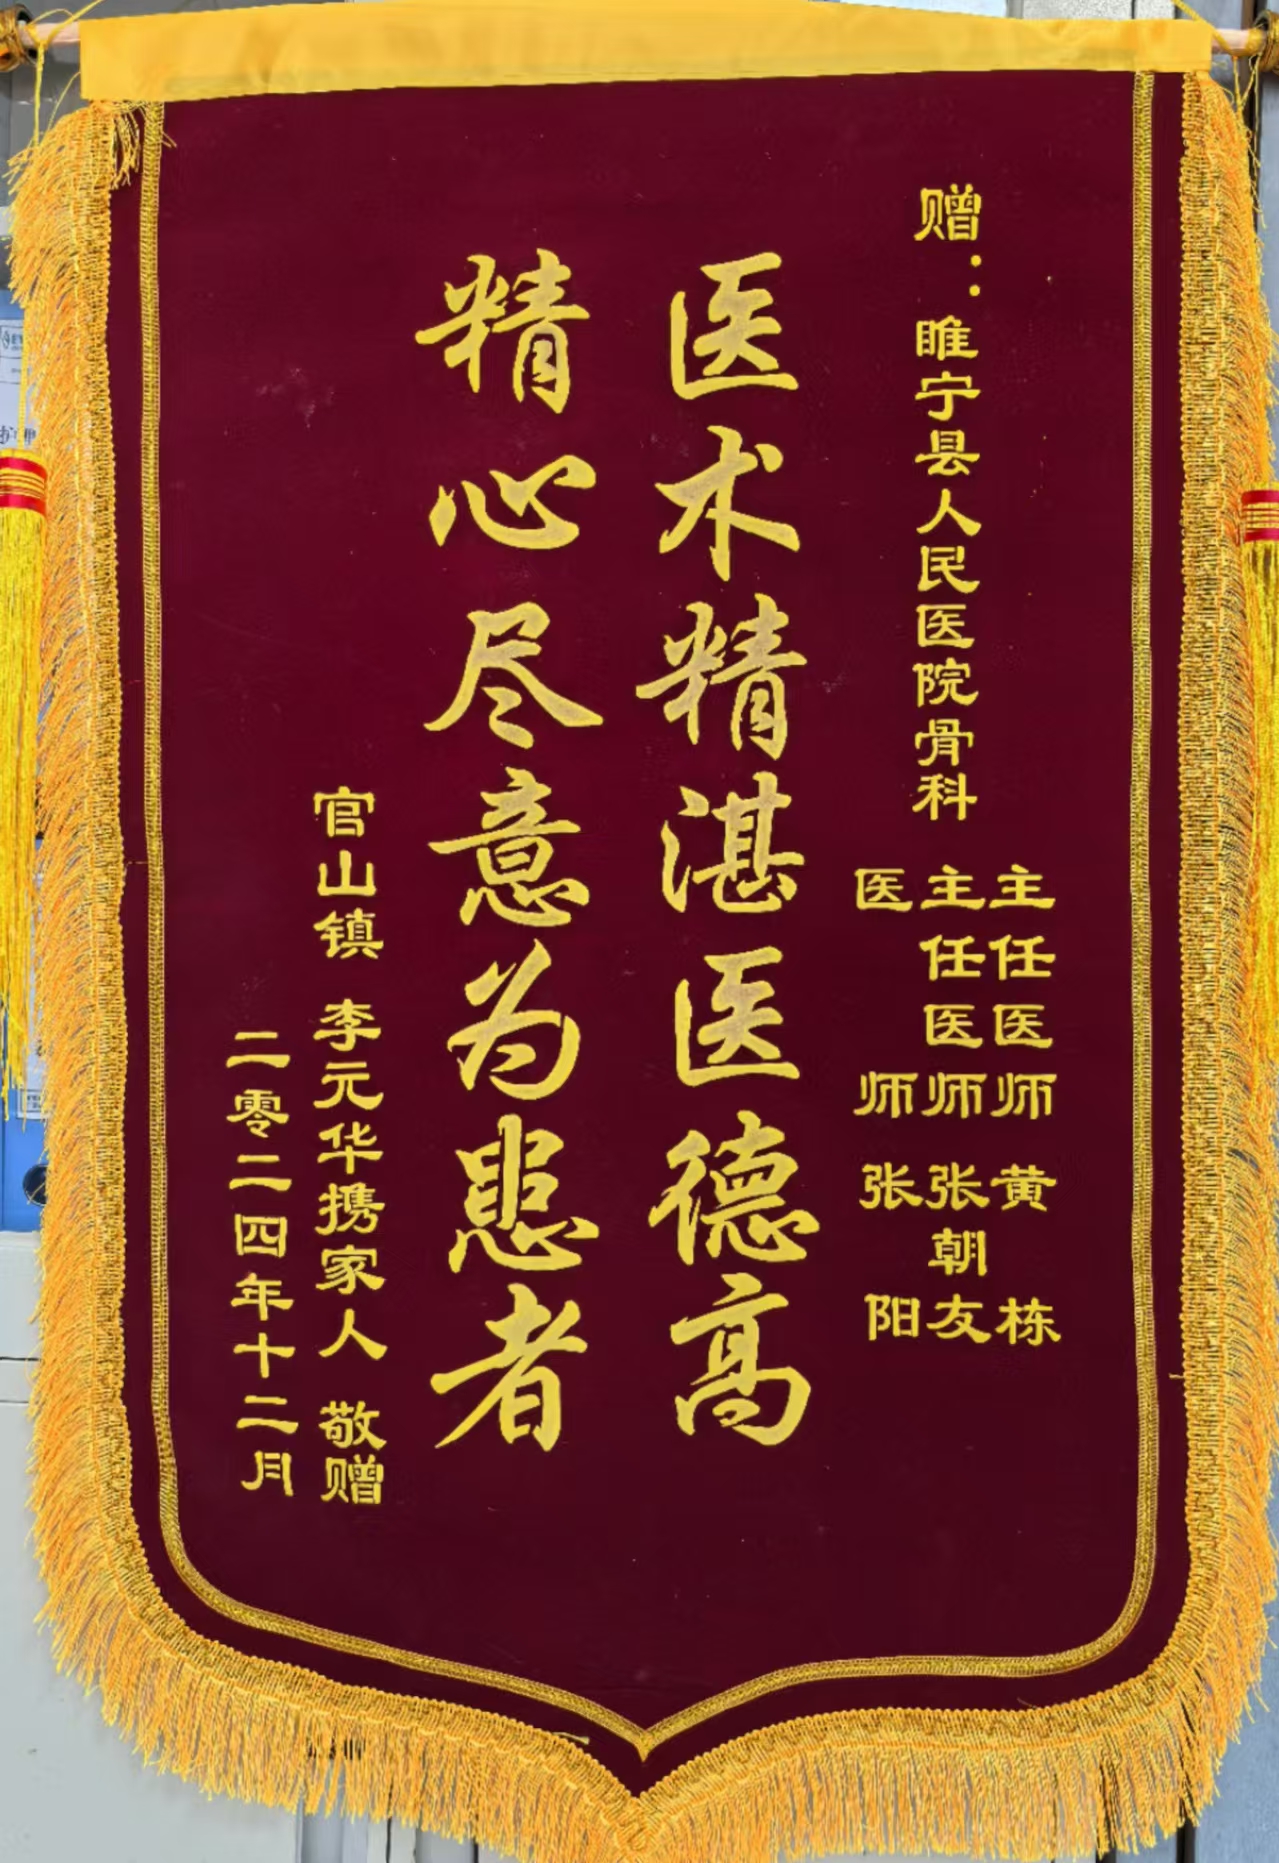 赠：睢宁县人民医院骨科
主任医师 黄栋
主任医师 张朝友
医师 张阳
医术精湛医德高
精心尽意为患者
官山镇 李元华携家人 敬赠
二零二四年十二月